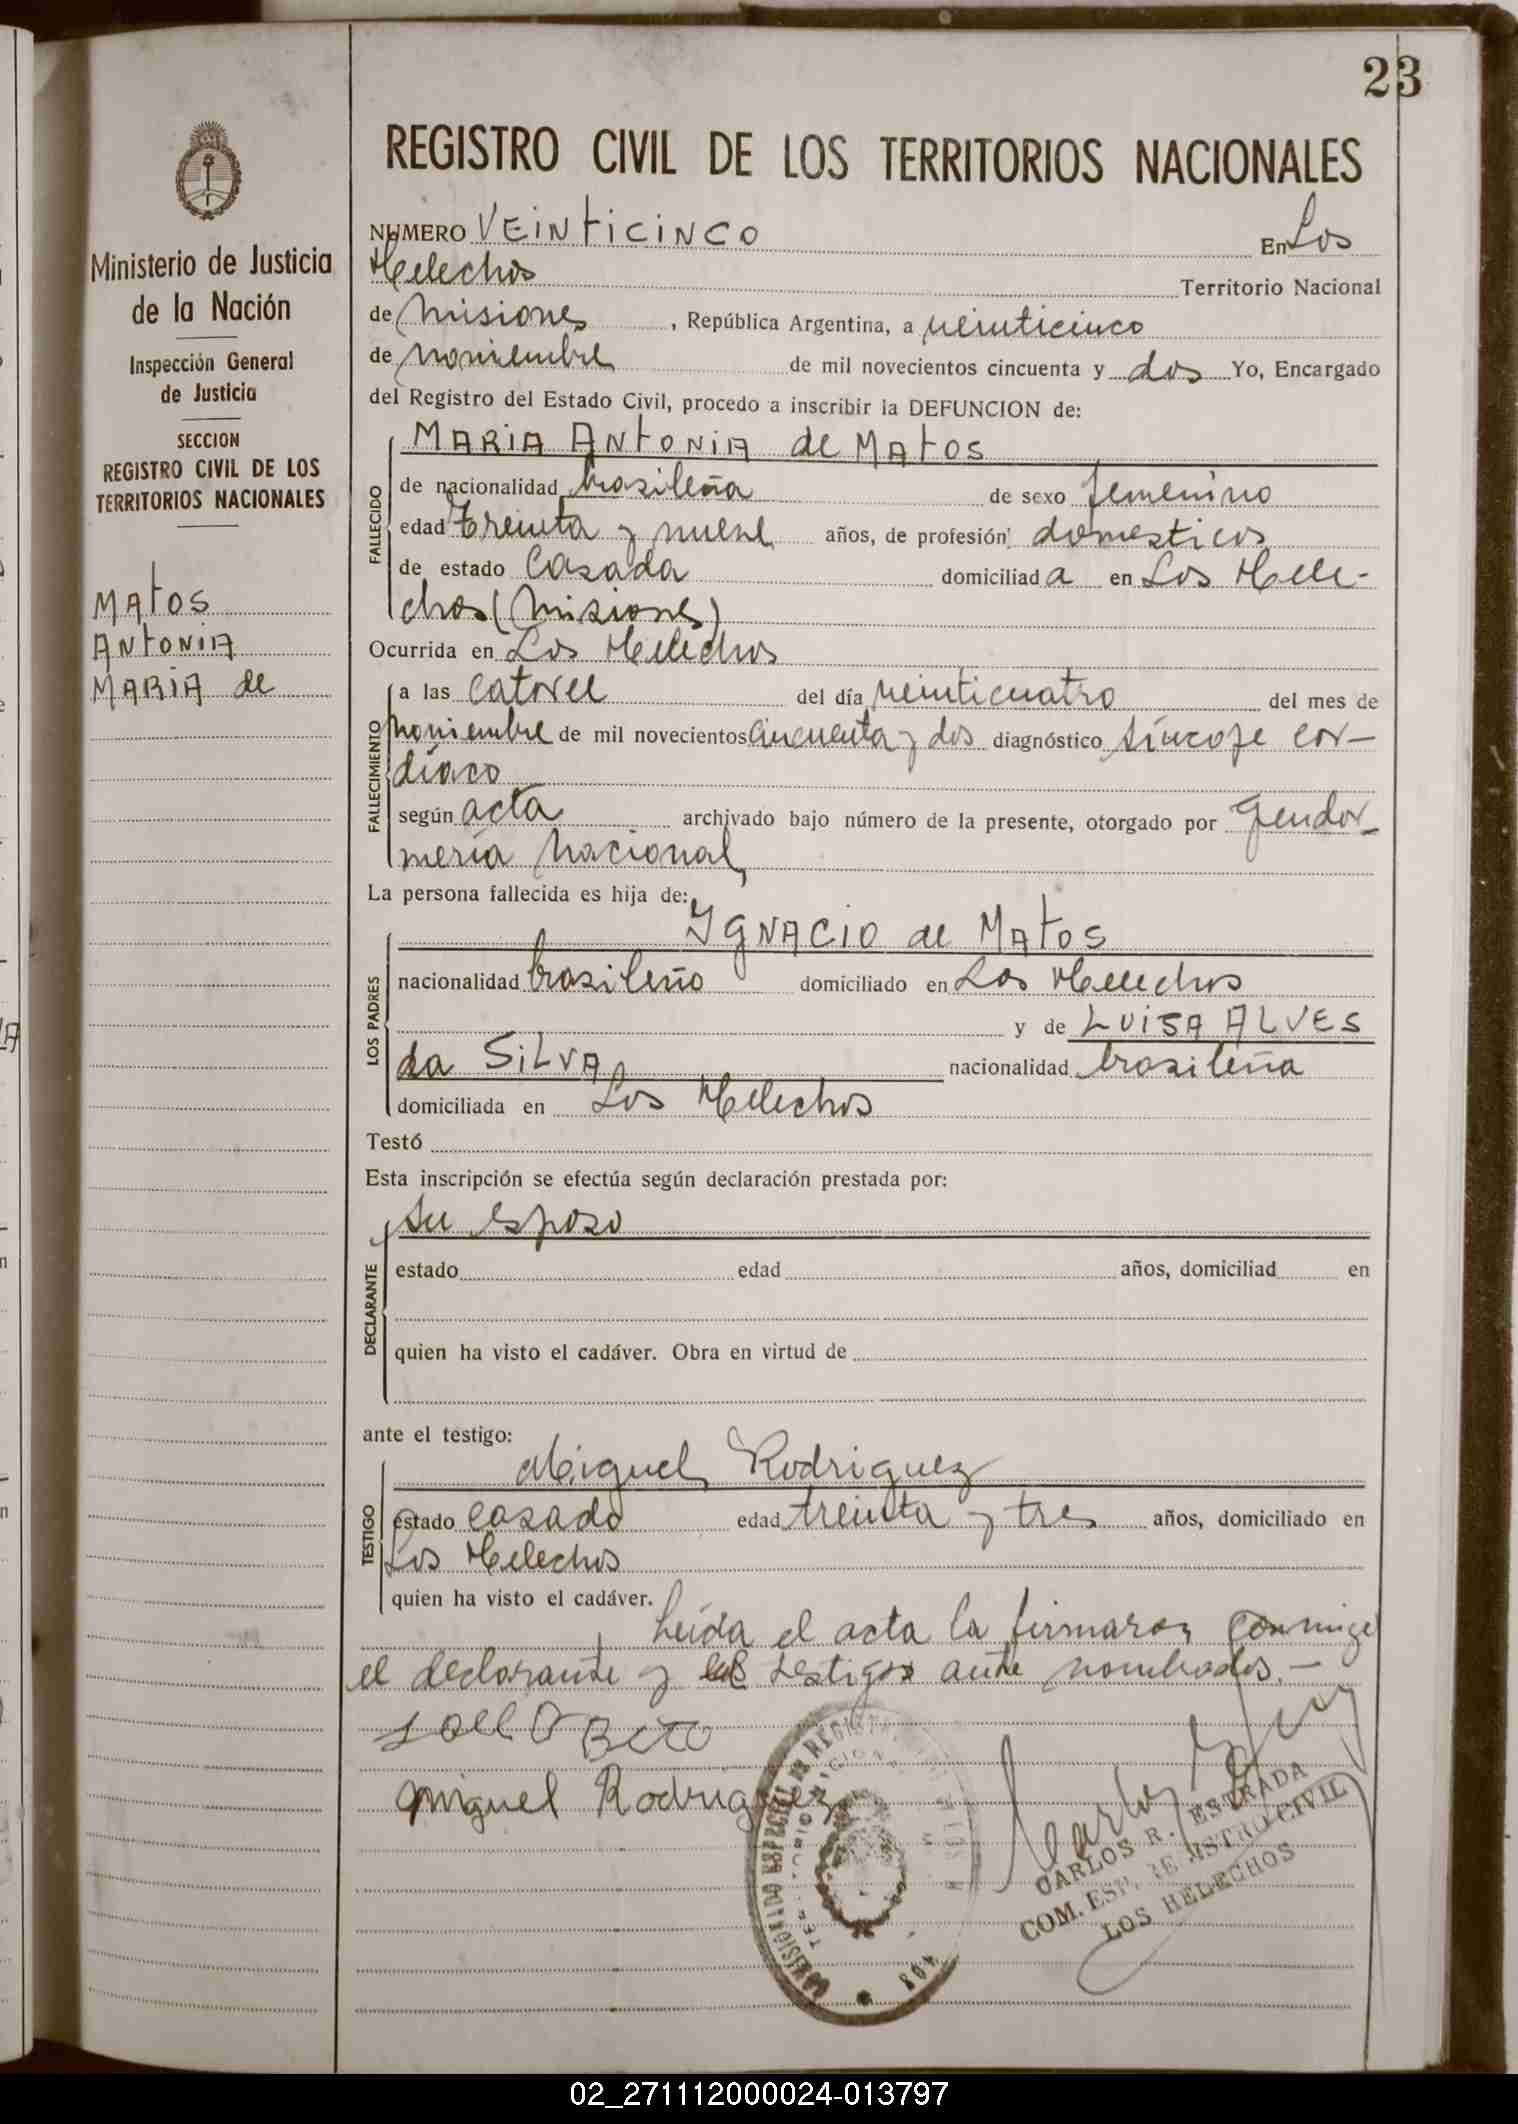 23
REGISTRO CIVIL DE LOS TERRITORIOS NACIONALES
Ministerio de Justicia
de la Nación
Inspección General
de Justicia
SECCION
REGISTRO CIVIL DE LOS
TERRITORIOS NACIONALES
MAtOS
ANtONIA
MARIA de
NUMERO VEINtiCINCO En Los
Helechos Territorio Nacional
de Misiones , República Argentina, a veinticinco
de noviembre de mil novecientos cincuenta y dos Yo, Encargado
del Registro del Estado Civil, procedo a inscribir la DEFUNCION de:
MARIA ANtONIA de MAtOS
FALLECIDO
de nacionalidad brasileña de sexo femenino
edad treinta y nueve años, de profesión domesticos
de estado Casada domiciliada en Los Hele-
chos (Misiones)
Ocurrida en Los Helechos
FALLECIMIENTO
a las catorce del día veinticuatro del mes de
noviembre de mil novecientos cincuenta y dos diagnóstico síncope car-
díaco
según acta archivado bajo número de la presente, otorgado por Gendar-
mería Nacional
La persona fallecida es hija de:
IGNACIO de MAtOS
LOS PADRES
nacionalidad brasileño domiciliado en Los Helechos
y de LUISA ALVES
da SILVA nacionalidad brasileña
domiciliada en Los Helechos
Testó
Esta inscripción se efectúa según declaración prestada por:
su esposo
DECLARANTE
estado edad años, domiciliad en
quien ha visto el cadáver. Obra en virtud de
ante el testigo:
Miguel Rodriguez
TESTIGO
estado casado edad treinta y tres años, domiciliado en
Los Helechos
quien ha visto el cadáver.
Leída el acta la firmaron conmigo
el declarante y testigos ante nombrados.-
Miguel Rodriguez
CARLOS R. ESTRADA
COM. ESP. REGISTRO CIVIL
LOS HELECHOS
02_271112000024-013797